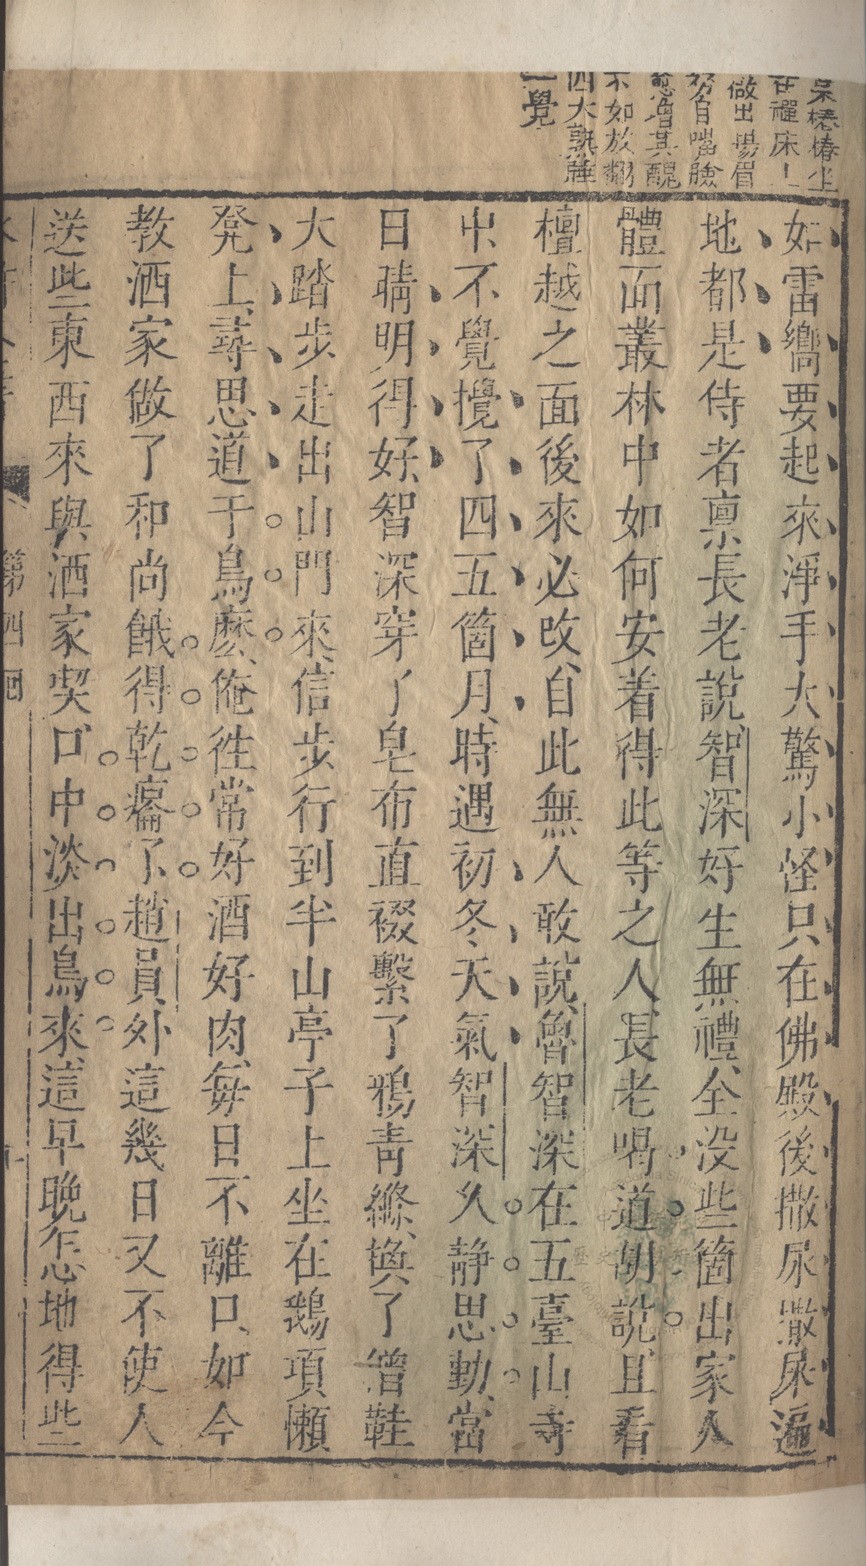 呆樁樁坐
在禪床上
做出揚眉
努目嘴臉
愈增其醜
不如放翻
四大熟睡
一覺
如雷嚮要起來淨手大驚小怪只在佛殿後撒尿撒屎遍
地都是侍者禀長老說智深好生無禮全没些箇出家人
體面叢林中如何安着得此等之人長老喝道胡說且看
檀越之面後來必改自此無人敢說魯智深在五臺山寺
中不覺攪了四五箇月時遇初冬天氣智深久靜思動當
日晴明得好智深穿了皂布直裰繫了鴉青縧換了僧鞋
大踏步走出山門來信步行到半山亭子上坐在鵝項懶
凳上尋思道干鳥麽俺徃常好酒好肉每日不離口如今
教洒家做了和尚餓得乾癟了趙員外這幾日又不使人
送些東西來與洒家喫口中淡出鳥來這早晚怎地得些
第四回